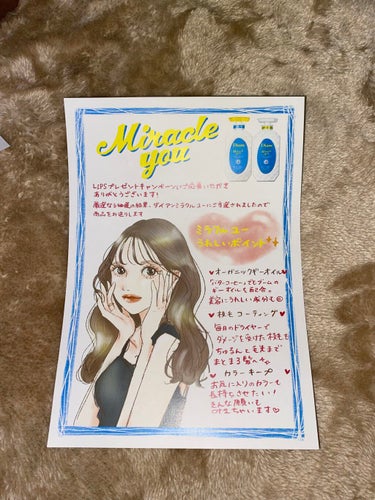 Miracle
you
Diane
Diane
LIPSプレゼントキャンペーンにご応募いただき
ありがとうございます！
厳選なる抽選の結果、ダイアンミラクルユーにご当選されましたので
商品をお送りします
ミラクルユー
うれしいポイント
♥オーガニックギーオイル♥
バターコーヒーでもブームの
ギーオイルを配合。
美容にうれしい成分も
♥枝毛コーティング♥
毎日のドライヤーで
ダメージを受けた枝毛も
ちゅるんと毛先まで
まとまる髪へ
♥カラーキープ♥
お気に入りのカラーも
長持ちさせたい！
そんな願いも
叶えちゃいます♡